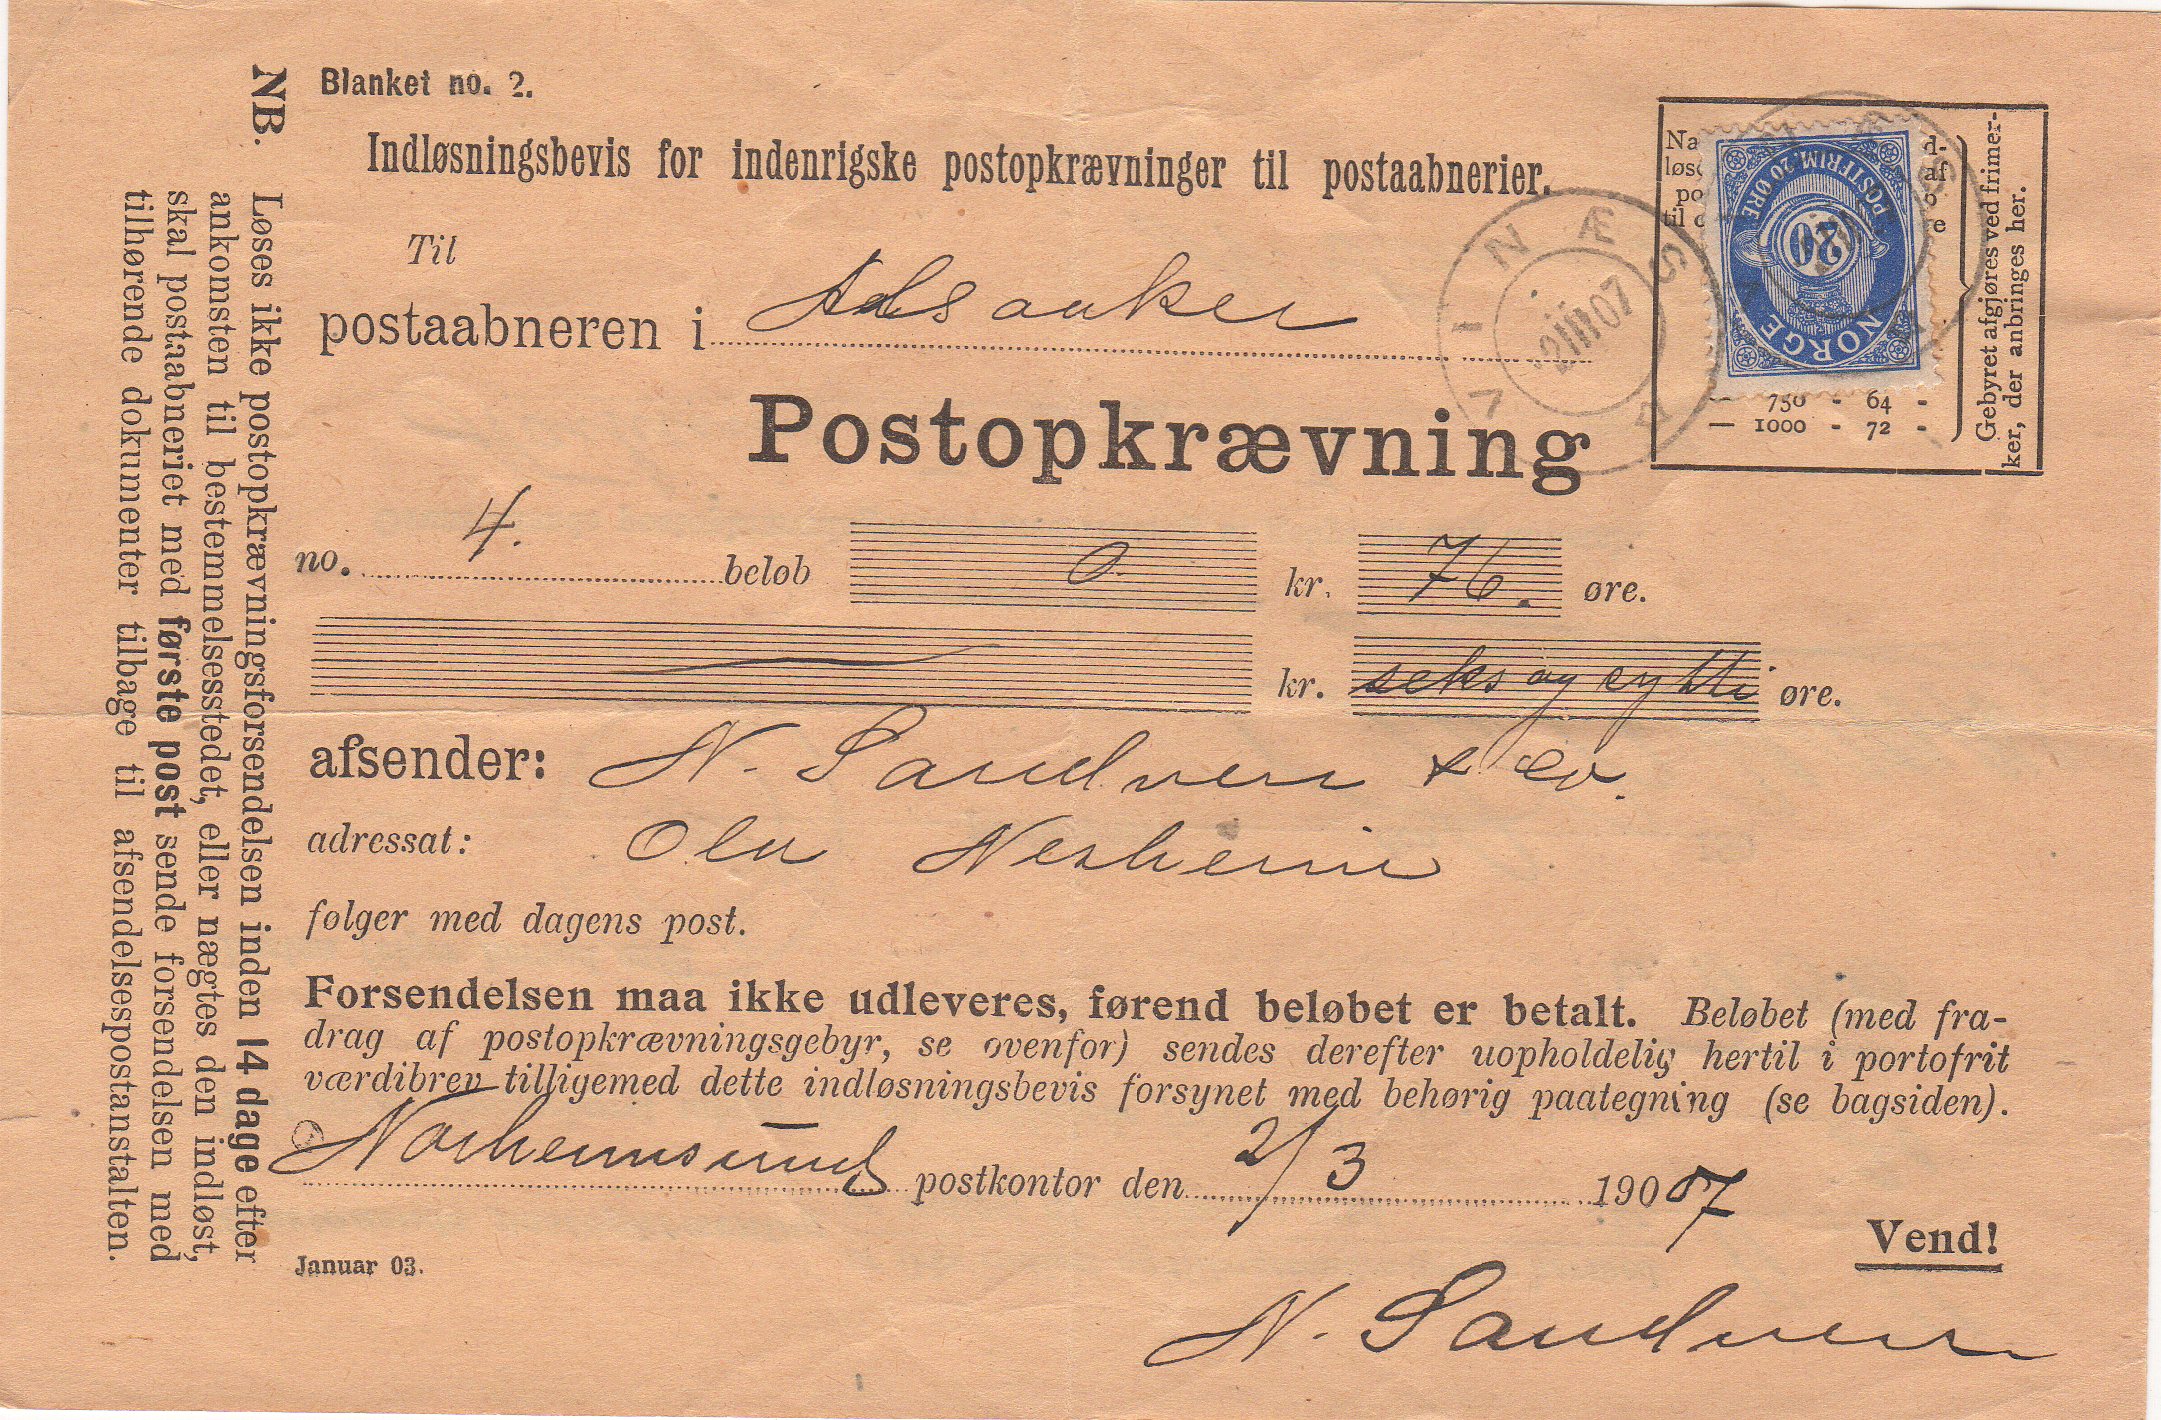 Blanket no. 2.
Indløsningsbevis for indenrigske postopkrævninger til postaabnerier.
Til
postaabneren i
Postopkrævning
no. 4. beløb 0 kr. 76. øre.
kr. seks og sytti øre.
afsender: N. Sandven & Co.
adressat: Ola Nesheim
følger med dagens post.
Forsendelsen maa ikke udleveres, førend beløbet er betalt. Beløbet (med fra-
drag af postopkrævningsgebyr, se ovenfor) sendes derefter uopholdelig hertil i portofrit
værdibrev tilligemed dette indløsningsbevis forsynet med behørig paategning (se bagsiden).
Norheimsund postkontor den 2/3 1907
Vend!
Januar 03.
N. Sandven
NB. Løses ikke postopkrævningsforsendelsen inden 14 dage efter
ankomsten til bestemmelsesstedet, eller nægtes den indløst,
skal postaabneriet med første post sende forsendelsen med
tilhørende dokumenter tilbage til afsendelsespostanstalten.
NORGE
POSTFRIM 20 ØRE
20
VINÆS
2 III 07
— 750 - 64 -
— 1000 - 72 -
Gebyret afgjøres ved frimer-
ker, der anbringes her.